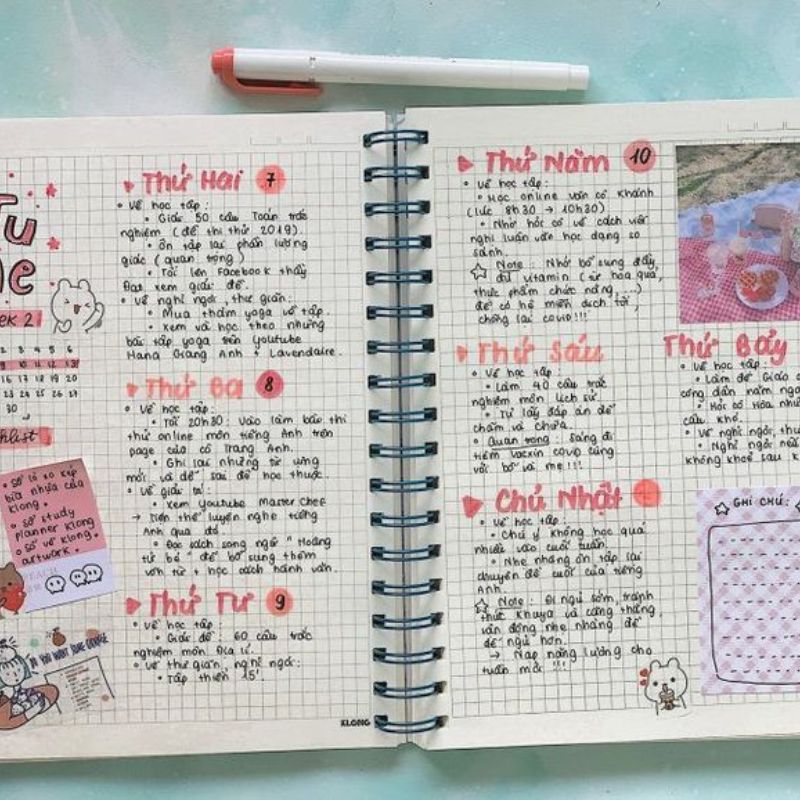 Tu
ek 2
2 3 4 5 6
9 10 11 12 13
16 17 18 19 20
23 24 25 26 27
30
klist
• sổ lò xo kẹp
bìa nhựa của
Klong.
• sổ study
planner Klong
• sổ vẽ Klong
artwork.
DO YOU WANT SOME ORANGE
Thứ Hai 7
• Về học tập:
• Giải 50 câu Toán trắc
nghiệm (đề thi thử 2019).
• Ôn tập lại phần lượng
giác (quan trọng)
• Tối lên Facebook thầy
Đạt xem giải đề.
• Về nghỉ ngơi, thư giãn:
• Mua thảm yoga về tập.
• Xem và học theo những
bài tập yoga trên Youtube
Hana Giang Anh + Lavendaire.
Thứ Ba 8
• Về học tập:
• Tối 20h30: Vào làm bão thi
thử online môn tiếng Anh trên
page của cô Trang Anh.
• Ghi lại những từ vựng
mới và đề sai để học thuộc.
• Về giải trí:
• Xem Youtube Master Chef
→ Tiện thể luyện nghe tiếng
Anh qua đó.
• Đọc sách song ngữ "Hoàng
tử bé" để bổ sung thêm
vốn từ + học cách hành văn.
Thứ Tư 9
• Về học tập
• Giải đề: 60 câu trắc
nghiệm môn Địa lí.
• Về thư giãn, nghỉ ngơi:
• Tập thiền 15'
KLONG
Thứ Năm 10
• Về học tập:
• Học online văn cô Khánh
(lúc 8h30 → 10h30)
• Nhớ hỏi cô về cách viết
nghị luận văn học dạng so
sánh.
Note: Nhớ bổ sung đầy
đủ vitamin (từ hoa quả,
thực phẩm chức năng,...)
để có hệ miễn dịch tốt,
chống lại covid!!!
Thứ Sáu
• Về học tập:
• Làm 40 câu trắc
nghiệm môn Lịch sử.
• Tự lấy đáp án để
chấm và chữa.
• Quan trọng: Sáng đi
tiêm vacxin covid cùng
với bố và mẹ!!!
Chủ Nhật
• Về học tập:
• Chú ý không học quá
nhiều vào cuối tuần.
• Nhẹ nhàng ôn tập lại
chuyên đề cuối của tiếng
Anh.
Note: Đi ngủ sớm, tránh
thức khuya và căng thẳng,
vận động nhẹ nhàng để
dễ ngủ hơn.
→ Nạp năng lượng cho
tuần mới!!!
Thứ Bảy
• Về học tập:
• Làm đề Giáo d
công dân năm ngo
• Hỏi cô Hóa nhữ
câu khó.
• Về nghỉ ngơi, thư
• Nghỉ ngơi nếu
không khoẻ sau k
GHI CHÚ: